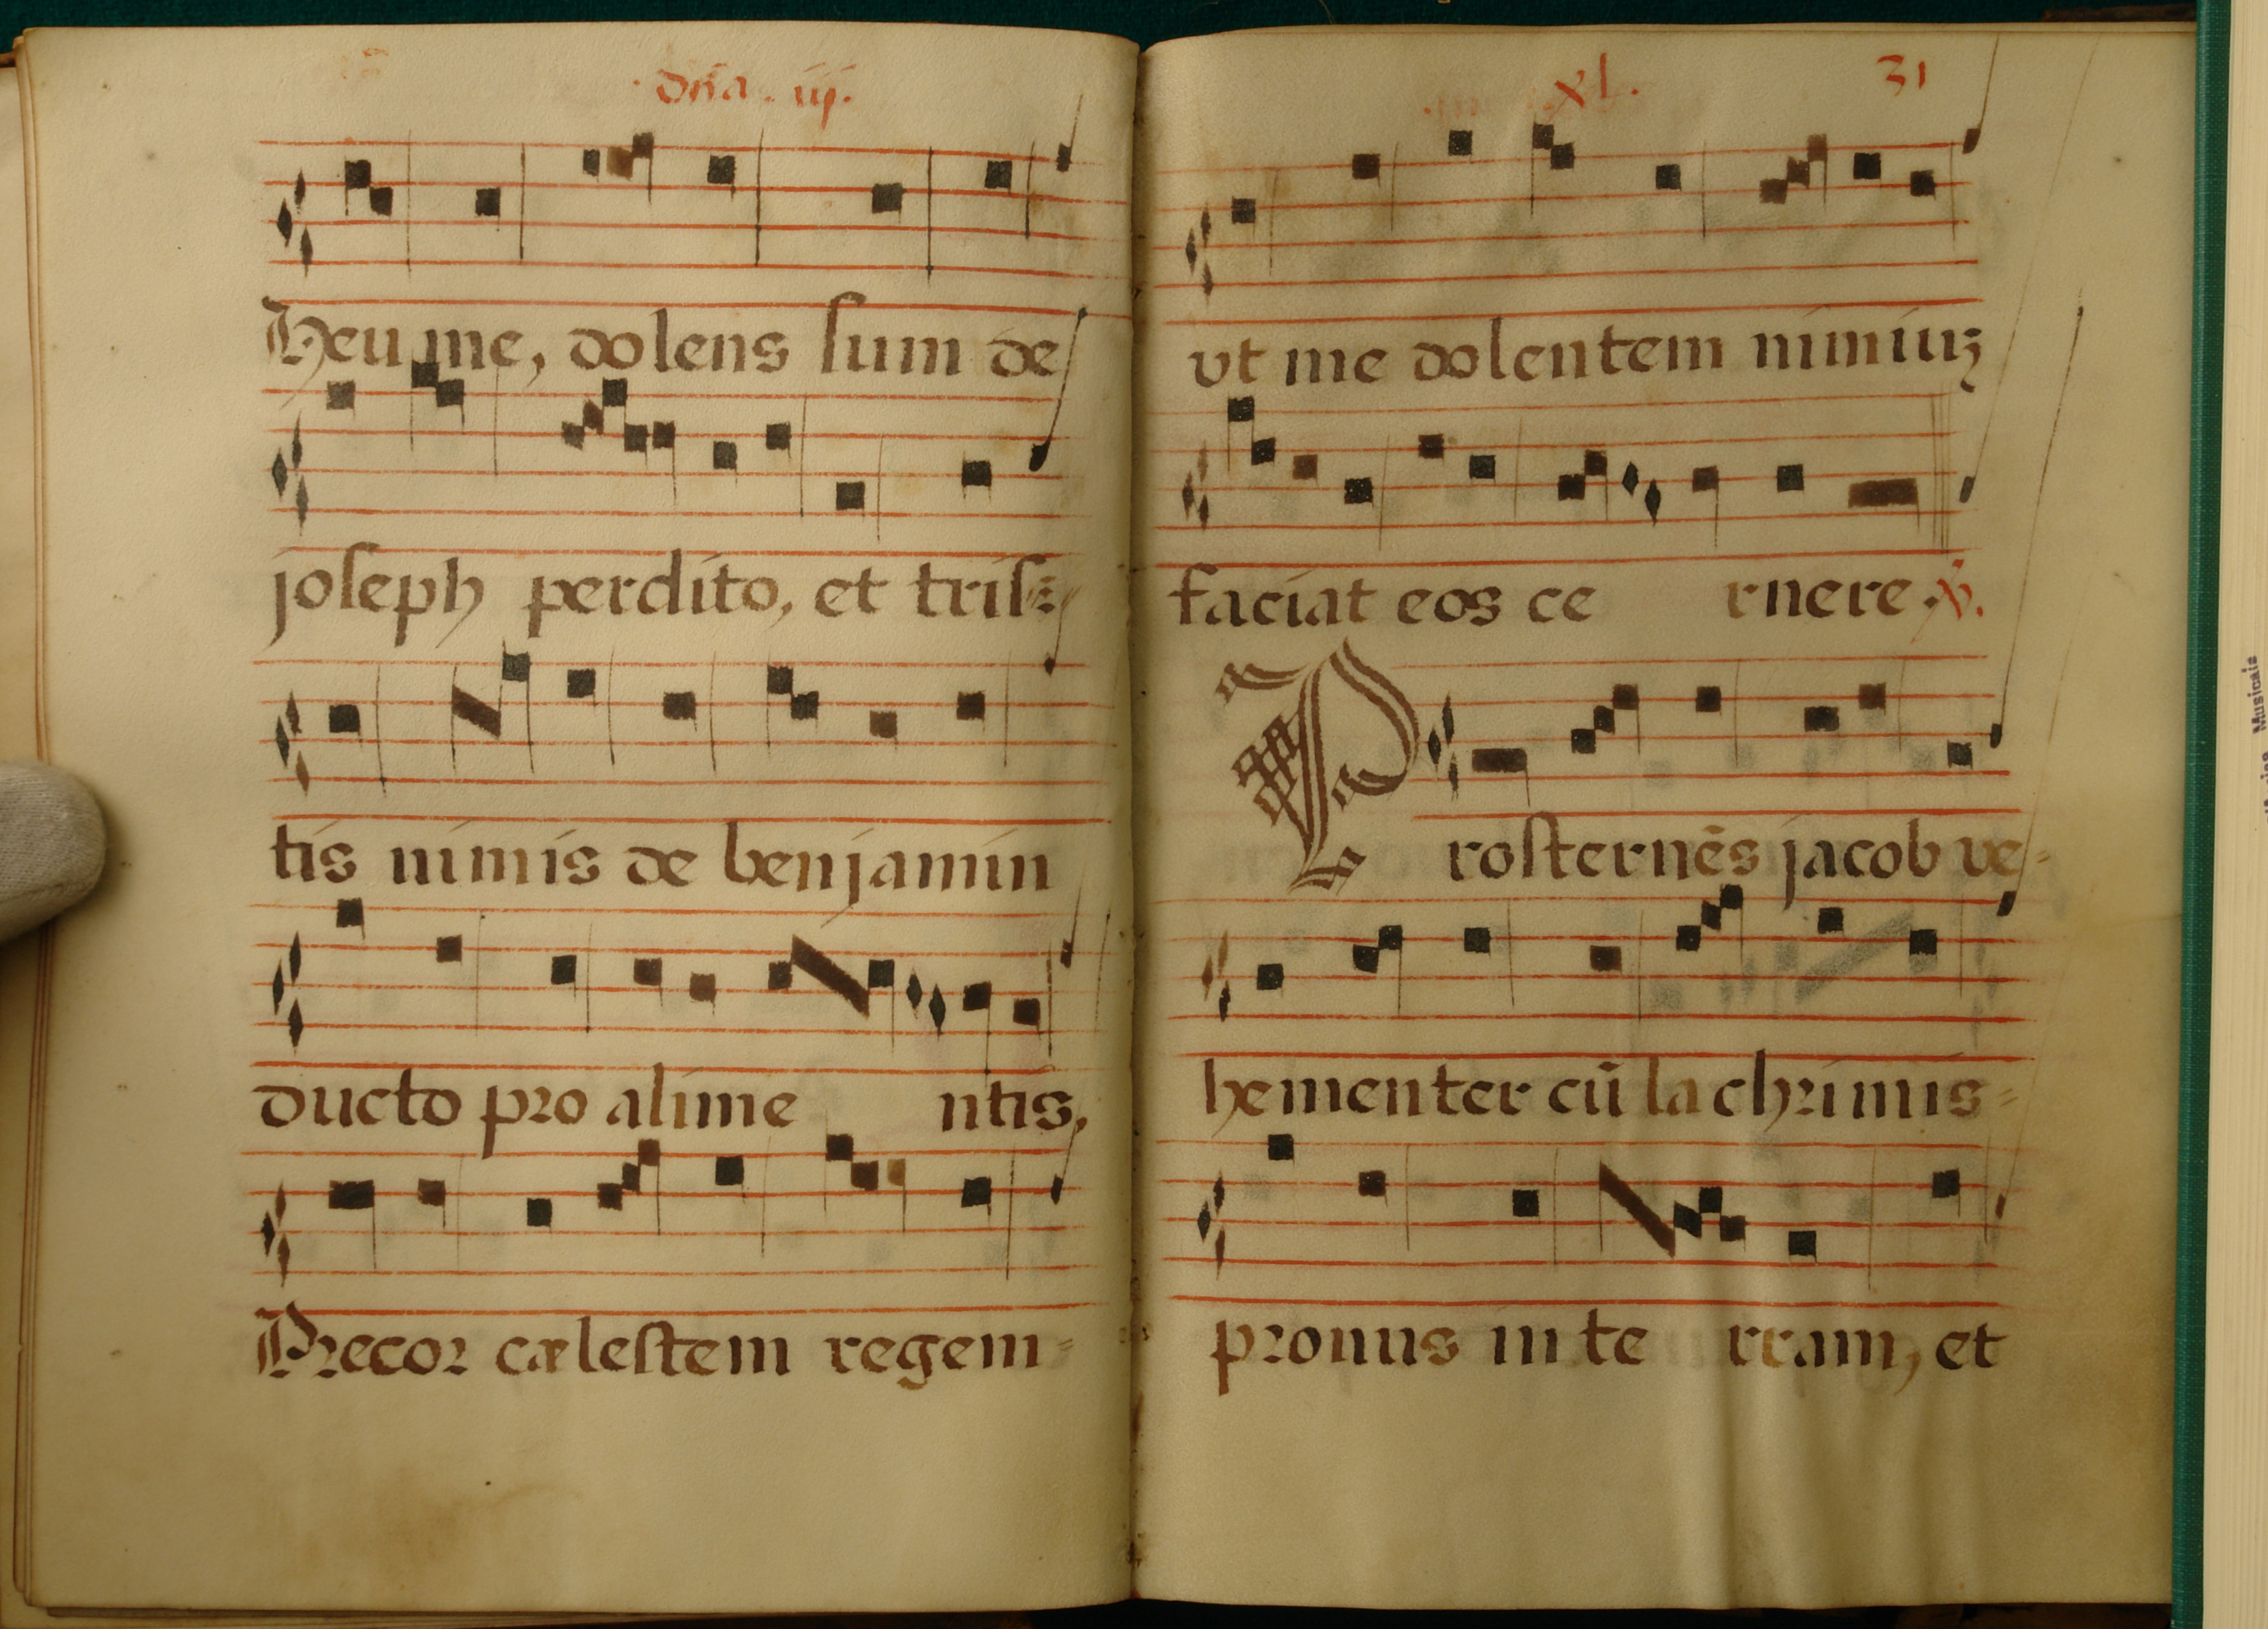 ·Dña. iij.
Heu me, dolens sum de
joseph perdito, et tris=
tis nimis de benjamin
ducto pro alime ntis,
Precor cælestem regem=
xl.
31
vt me dolentem nimiuȝ
faciat eos ce rnere ℣.
Prosternẽs jacob ve=
hementer cũ lachrimis=
pronus in te rram, et
Musicais